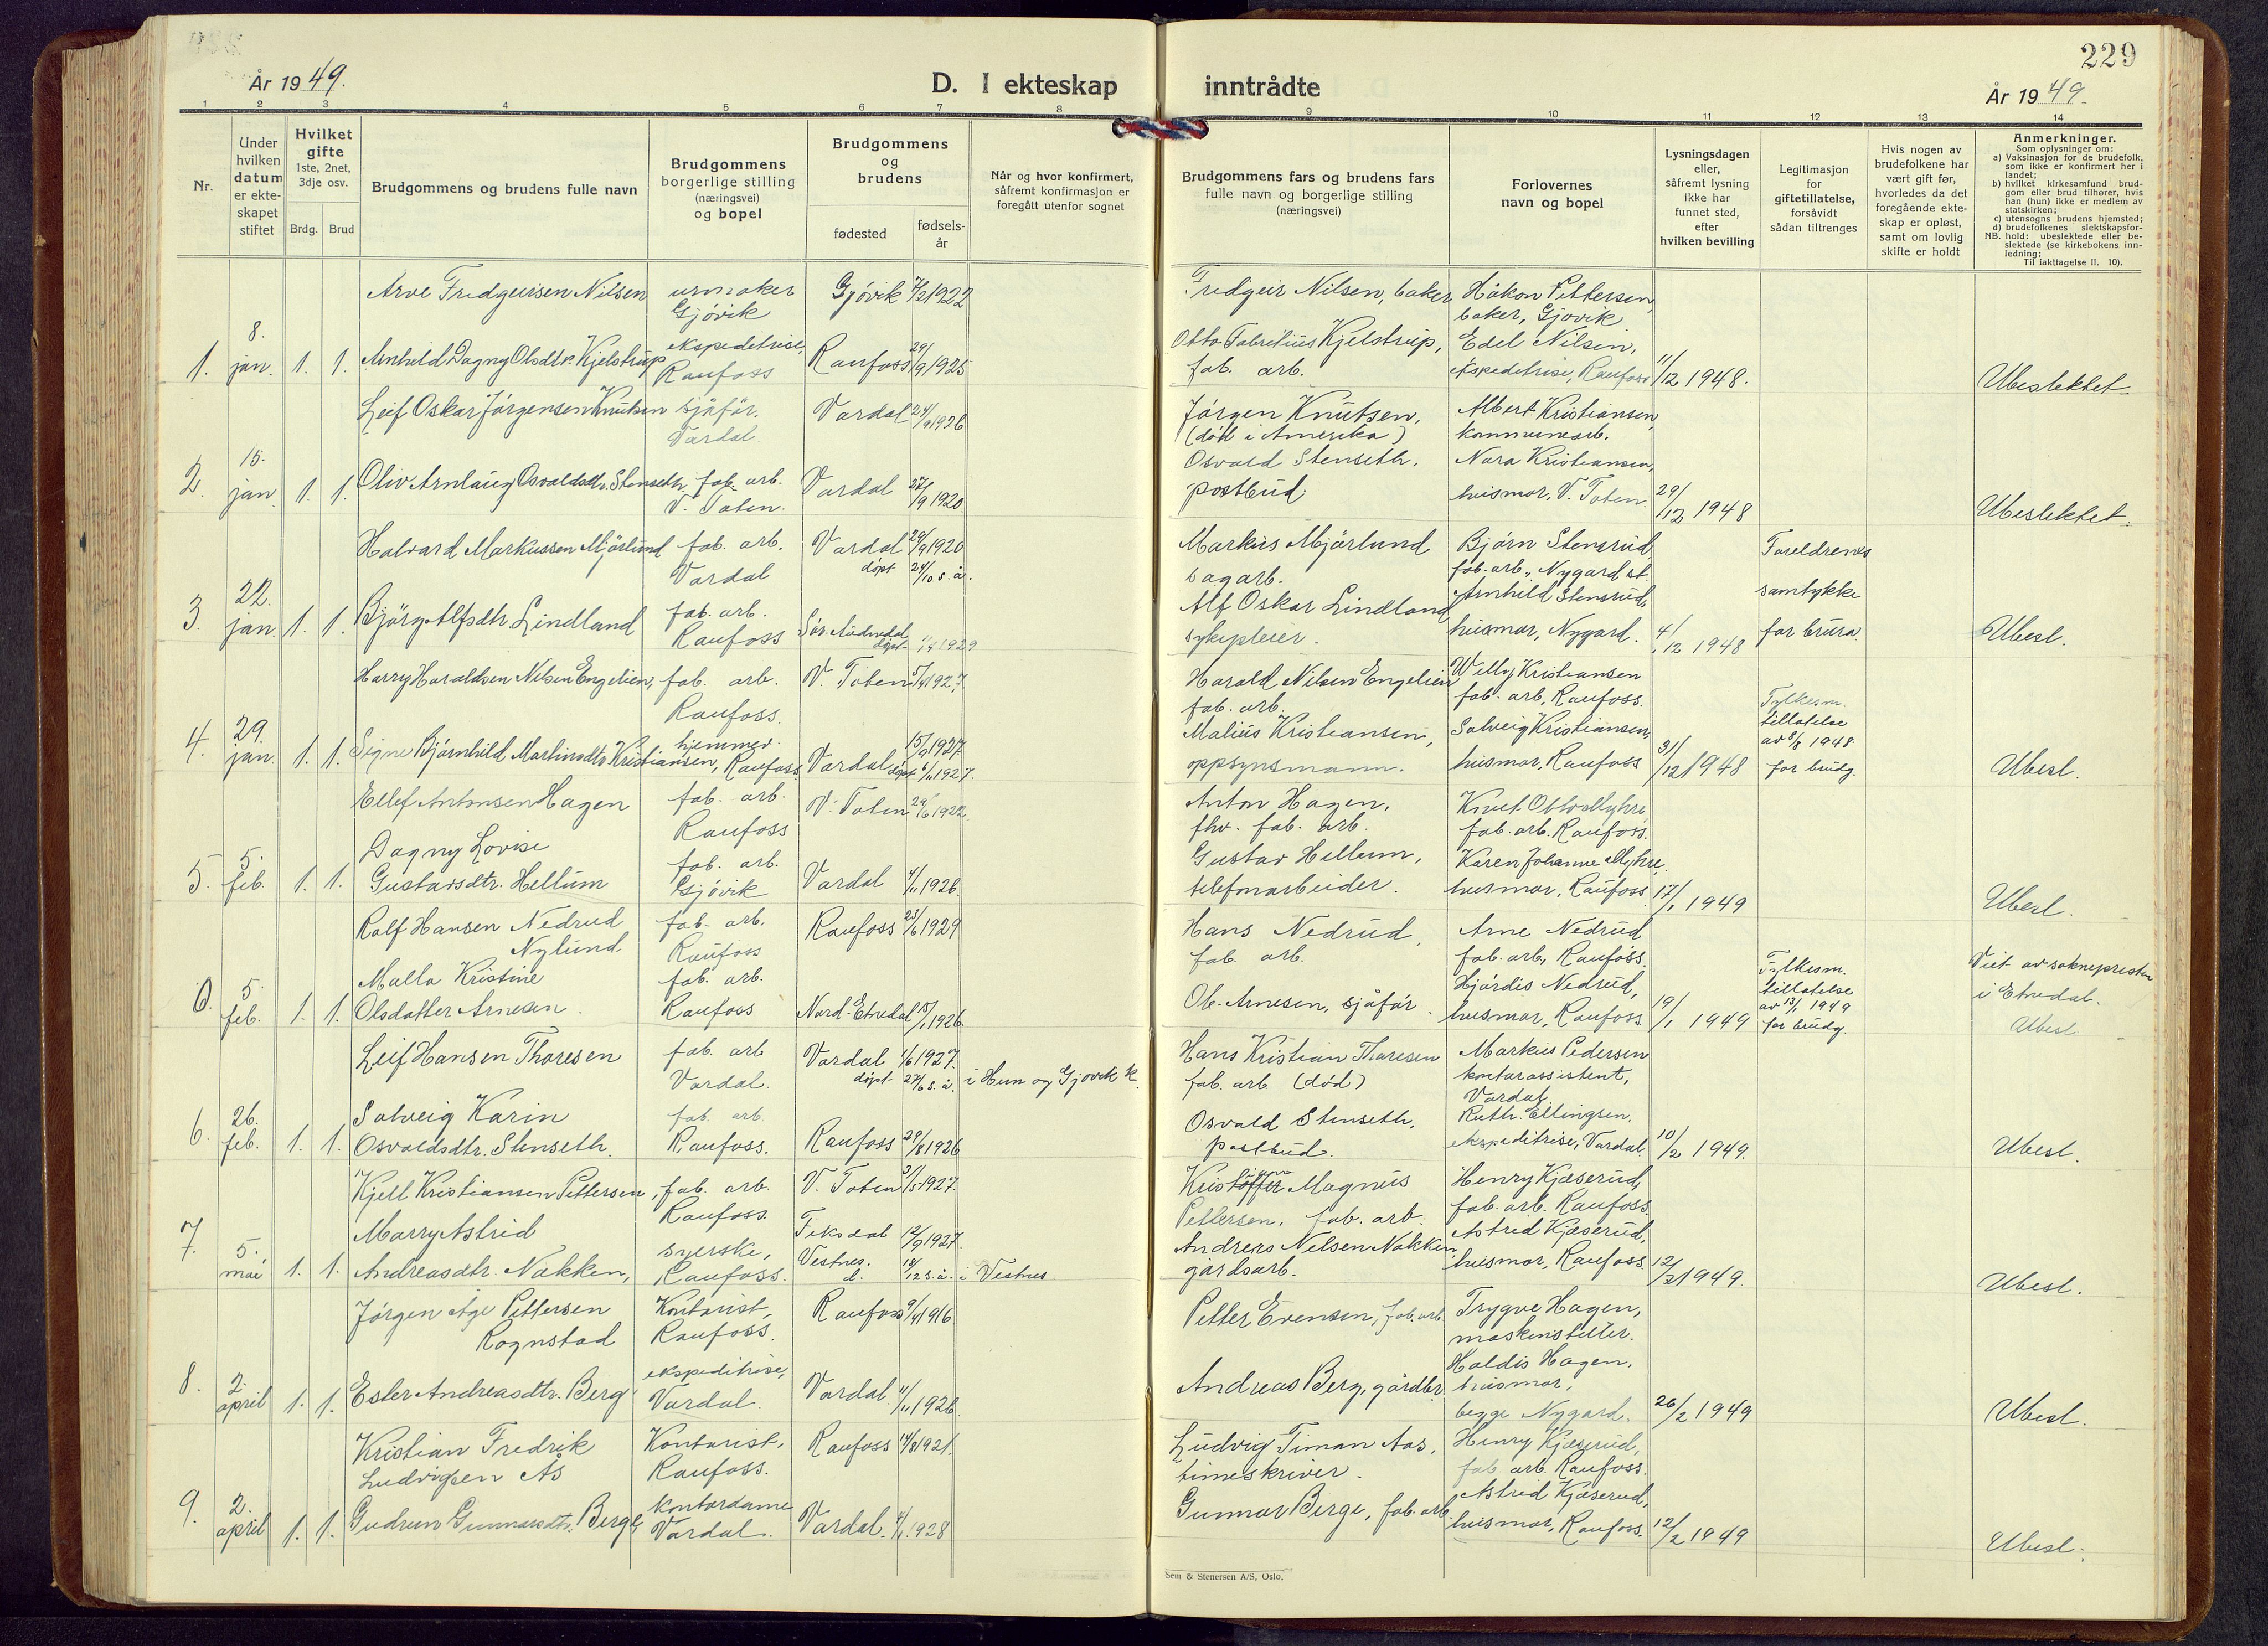 229
År 1949.
D. I ekteskap inntrådte
År 1949.
1 2 3 4 5 6 7 8 9 10 11 12 13 14
Nr.
Under hvilken datum er ekte-skapet stiftet
Hvilket gifte 1ste, 2net, 3dje osv.
Brdg. Brud
Brudgommens og brudens fulle navn
Brudgommens borgerlige stilling (næringsvei) og bopel
Brudgommens og brudens
fødested
fødsels-år
Når og hvor konfirmert, såfremt konfirmasjon er foregått utenfor sognet
Brudgommens fars og brudens fars fulle navn og borgerlige stilling (næringsvei)
Forlovernes navn og bopel
Lysningsdagen eller, såfremt lysning ikke har funnet sted, efter hvilken bevilling
Legitimasjon for giftetillatelse, forsåvidt sådan tiltrenges
Hvis nogen av brudefolkene har vært gift før, hvorledes da det foregående ekte-skap er opløst, samt om lovlig skifte er holdt
Anmerkninger.
Som oplysninger om:
a) Vaksinasjon for de brudefolk, som ikke er konfirmert her i landet;
b) hvilket kirkesamfund brud-gom eller brud tilhører, hvis han (hun) ikke er medlem av statskirken;
c) utensogns brudens hjemsted;
d) brudefolkenes slektskapsfor-hold: ubeslektede eller be-slektede (se kirkebokens inn-ledning;
NB. Til iakttagelse II. 10).
Arve Fredgeirsen Nilsen urmaker Gjøvik 7/2 1922 Fredgeir Nilsen, baker Håkon Pettersen,
Gjøvik baker, Gjøvik
1. 8. jan. 1. 1. Arnhild Dagny Olsdtr. Kjelstrup ekspeditrise, Raufoss Raufoss 29/9 1925 Otto Fabritius Kjelstrup, fab. arb. Edel Nilsen, ekspeditrise, Raufoss 11/12 1948. Ubeslektet.
Leif Oskar Jørgensen Knutsen sjåfør, Vardal Vardal 24/9 1926 Jørgen Knutsen, (død i Amerika) Albert Kristiansen, kommunearb.
2. 15. jan 1. 1. Oliv Arnlaug Osvaldsdtr. Stenseth fab. arb. V. Toten. Vardal 27/9 1920 Osvald Stenseth, postbud; Nora Kristiansen, husmor, V. Toten. 29/12 1948 Ubeslektet.
Halvard Markussen Mjørlund fab. arb. Vardal Vardal 20/9 1920 døpt 24/10 s. å. Markus Mjørlund sagarb. Bjørn Stensrud, fab. arb., Nygard st. Foreldrenes
3. 22. jan. 1. 1. Bjørg Alfsdtr Lindland fab. arb. Raufoss Sør-Audnedal døpt 1929 Alf Oskar Lindland sykepleier. Arnhild Stensrud, husmor, Nygard. 4/12 1948 samtykke for brura. Ubesl.
Harry Haraldsen Nilsen Engelien, fab. arb. Raufoss. V. Toten 1927 Harald Nilsen Engelien fab. arb. Willy Kristiansen fab. arb, Raufoss.
4. 29. jan. 1. 1. Signe Bjørnhild Martinsdtr Kristiansen, hjemmev. Raufoss. Vardal 1927 døpt 1927. Malius Kristiansen, oppsynsmann. Solveig Kristiansen, husmor, Raufoss 31/12 1948 Fylkesm. tillatelse av 8/8 1948 for brudg. Ubesl.
Ellef Antonsen Hagen fab. arb. Raufoss V. Toten 29/6 1922 Anton Hagen, fhv. fab. arb. Knut Otto Myhre, fab. arb. Raufoss.
5. 5. feb. 1. 1. Dagny Lovise Gustavsdtr. Hellum fab. arb. Gjøvik Vardal 4/11 1926. Gustav Hellum, telefonarbeider. Karen Johanne Myhre, husmor, Raufoss 17/1 1949 Ubesl.
Rolf Hansen Nedrud Nylund. fab. arb. Raufoss Raufoss 23/6 1929 Hans Nedrud, fab. arb. Arne Nedrud fab. arb, Raufoss.
0. 5. feb. 1. 1. Malla Kristine Olsdatter Arnesen. fab. arb. Raufoss Nord-Etnedal 15/1 1926. Ole Arnesen, sjåfør. Hjørdis Nedrud, husmor, Raufoss 19/1 1949 Fylkesm. tillatelse av 13/1 1949 for brudg. Viet av soknepresten i Etnedal. Ubesl.
Leif Hansen Thoresen fab. arb Vardal. Vardal 1/6 1927. døpt 27/6 s. å. i Hun og Gjøvik k. Hans Kristian Thoresen fab. arb (død) Markus Pedersen kontorassistent, Vardal.
6. 26. feb. 1. 1. Solveig Karin Osvaldsdtr. Stenseth. fab. arb. Raufoss. Raufoss 29/8 1926 Osvald Stenseth, postbud. Ruth Ellingsen. ekspeditrise, Vardal 10/2 1949. Ubesl.
Kjell Kristiansen Pettersen, fab. arb. Raufoss. V. Toten 3/5 1927. Kristian Magnus Pettersen, fab. arb. Henry Kjæserud, fab. arb. Raufoss.
7. 5. mai 1. 1. Marry Astrid Andreasdtr. Nakken, syerske, Raufoss. Fiksdal Vestnes. 12/9 1927. d. 18/12 s. å. i Vestnes. Andreas Nilsen Nakken gårdsarb. Astrid Kjæserud, husmor, Raufoss. 12/2 1949. Ubesl.
Jørgen Åge Pettersen Rognstad Kontorist, Raufoss. Raufoss 9/4 1916. Petter Evensen, fab. arb. Trygve Hagen, maskinstiller.
8. 2. april 1. 1. Ester Andreasdtr. Berg ekspeditrise, Vardal. Vardal. 11/11 1926. Andreas Berg, gårdbr. Haldis Hagen, husmor, begge Nygard. 26/2 1949 Ubesl.
Kristian Fredrik Ludvigsen Ås Kontorist, Raufoss. Raufoss 14/8 1921. Ludvig Timan Aas, timeskriver. Henry Kjæserud, fab. arb. Raufoss.
9. 2. april 1. 1. Gudrun Gunnarsdtr. Berge kontordame Vardal. Vardal. 1928 Gunnar Berge, fab. arb. Astrid Kjæserud, husmor, Raufoss. 12/2 1949 Ubesl.
Sem & Stenersen A/S, Oslo.